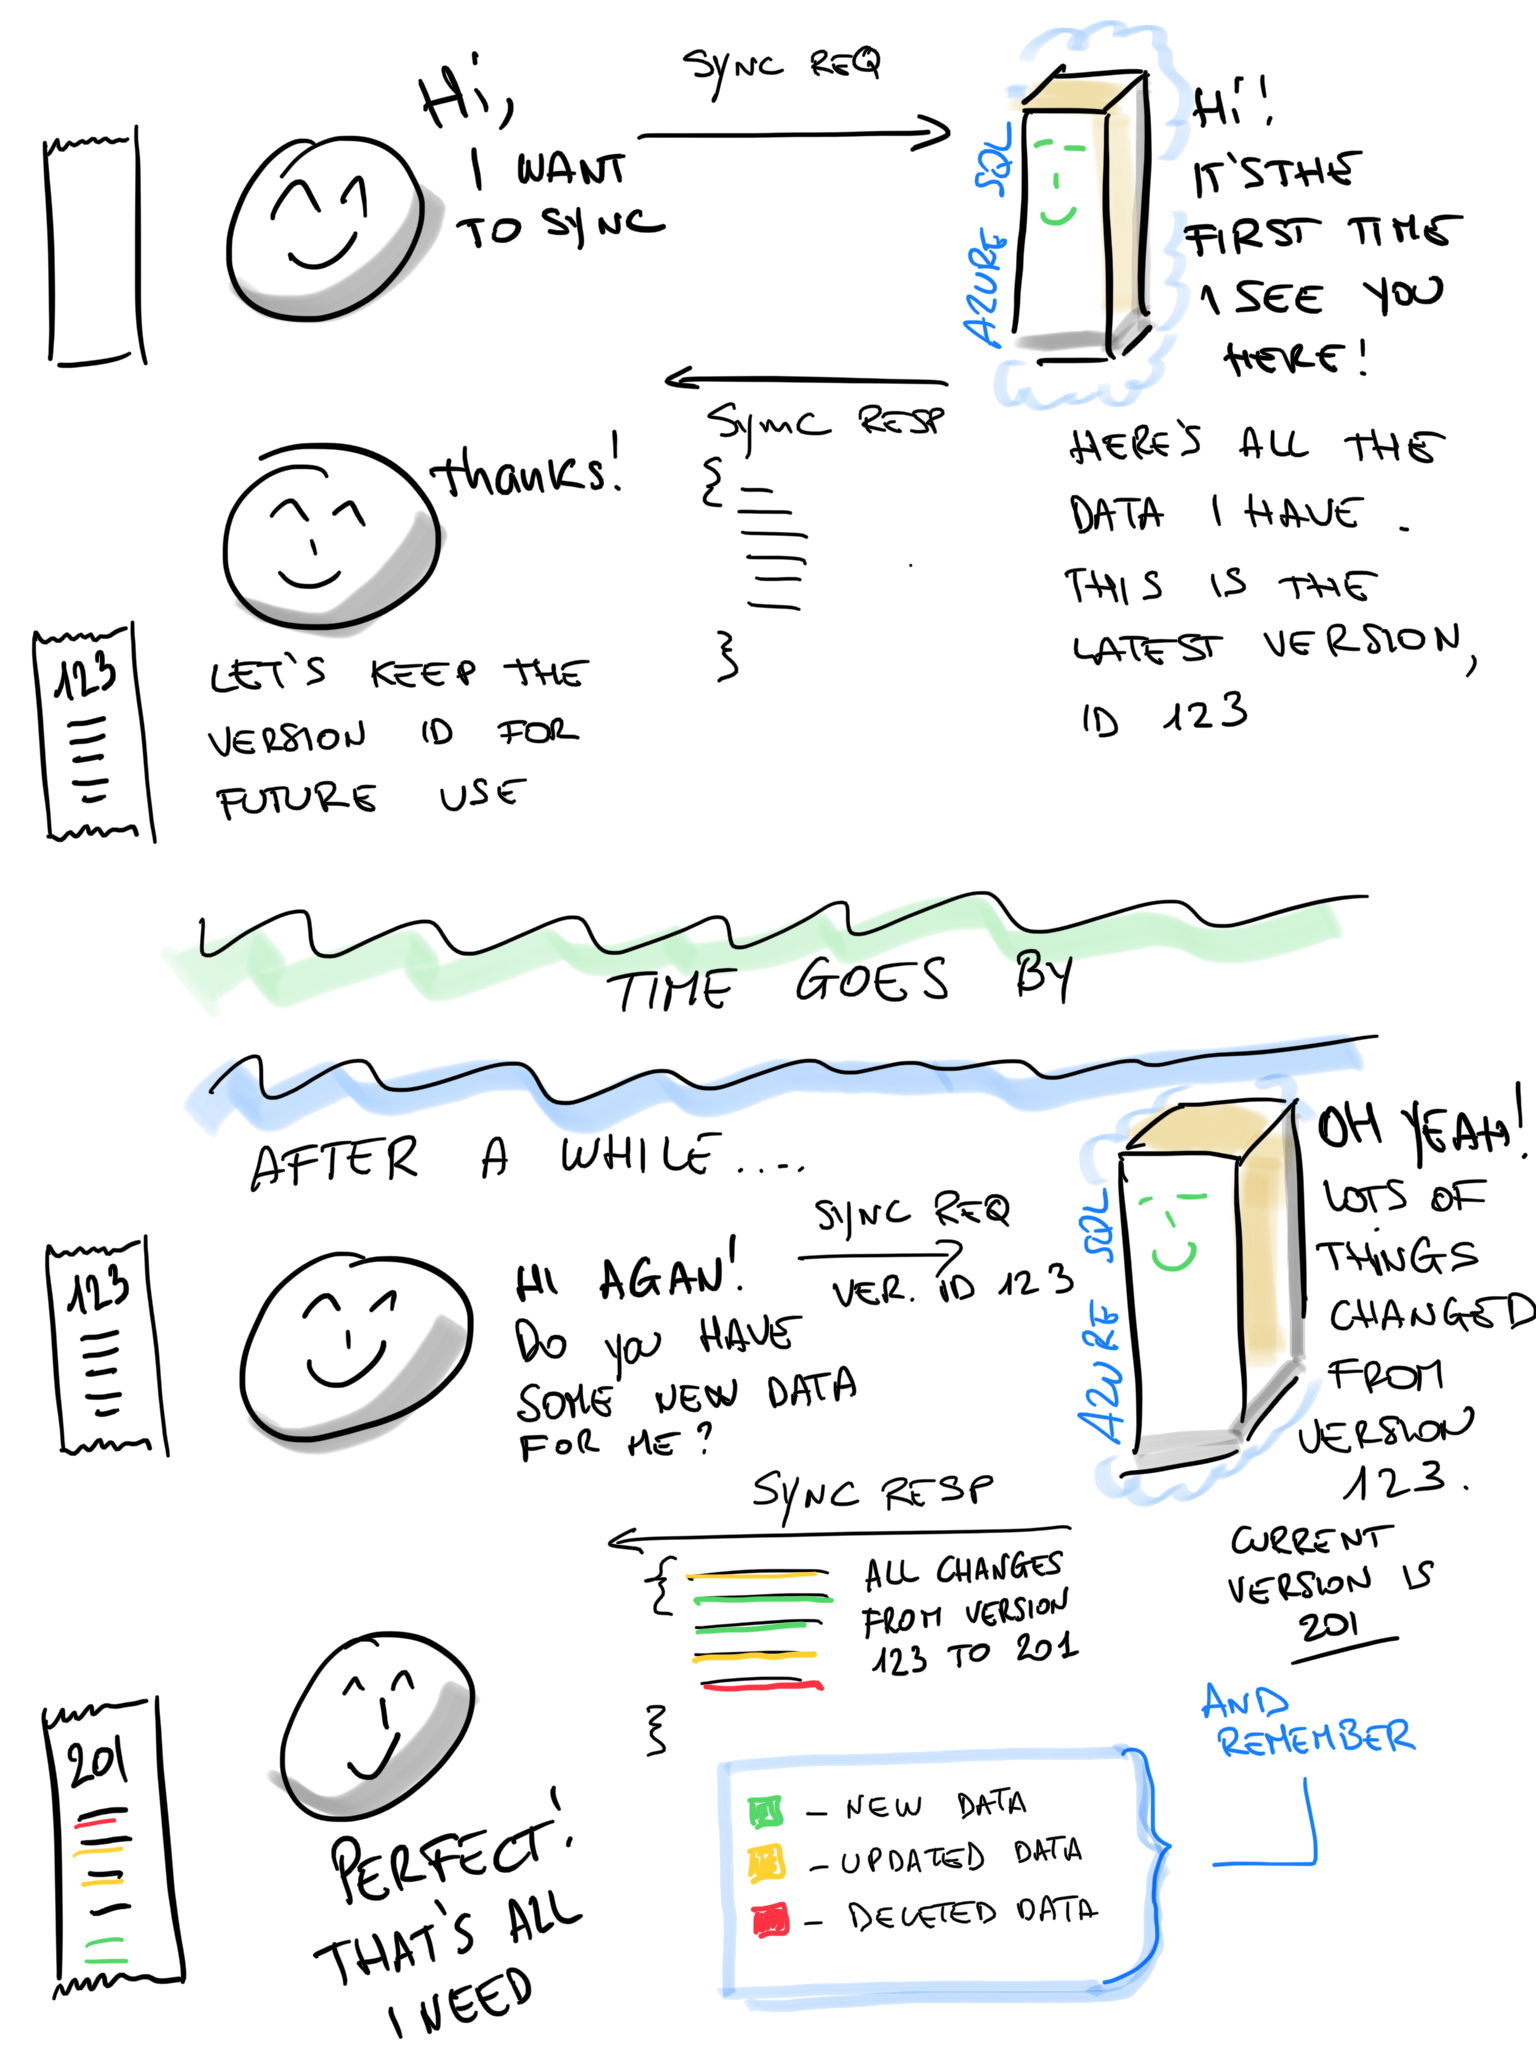 Hi,
I WANT
TO SYNC
SYNC REQ
AZURE SQL
Hi!
IT'S THE
FIRST TIME
I SEE YOU
HERE!
SYNC RESP
{
}
HERE'S ALL THE
DATA I HAVE.
THIS IS THE
LATEST VERSION,
ID 123
thanks!
123
LET'S KEEP THE
VERSION ID FOR
FUTURE USE
TIME GOES BY
AFTER A WHILE....
123
HI AGAN!
DO YOU HAVE
SOME NEW DATA
FOR ME?
SYNC REQ
VER. ID 123
AZURE SQL
OH YEAH!
LOTS OF
THINGS
CHANGED
FROM
VERSION
123.
CURRENT
VERSION IS
201
SYNC RESP
{
ALL CHANGES
FROM VERSION
123 TO 201
}
AND
REMEMBER
- NEW DATA
- UPDATED DATA
- DELETED DATA
201
PERFECT!
THAT'S ALL
I NEED